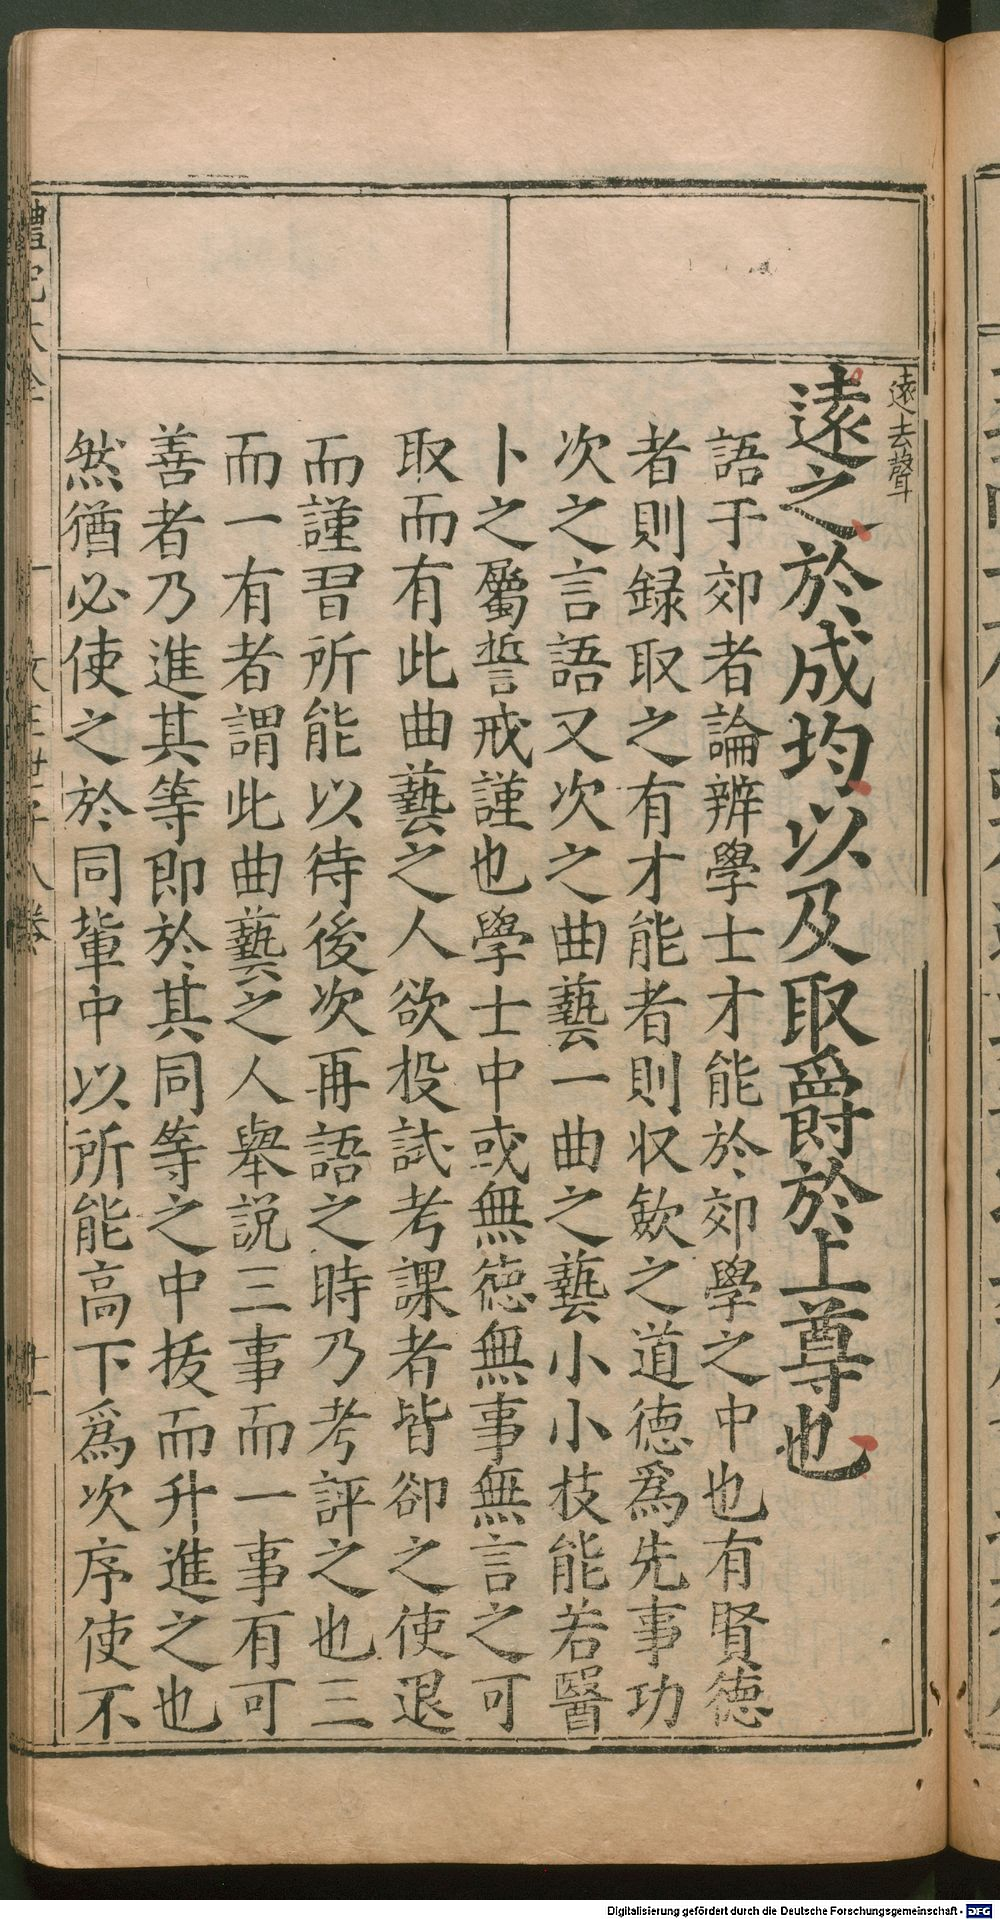 遠去聲
遠之於成均以及取爵於上尊也
語于郊者論辨學士才能於郊學之中也有賢徳
者則録取之有才能者則收歛之道徳爲先事功
次之言語又次之曲藝一曲之藝小小枝能若醫
卜之屬誓戒謹也學士中或無徳無事無言之可
取而有此曲藝之人欲投試考課者皆卻之使退
而謹習所能以待後次再語之時乃考評之也三
而一有者謂此曲藝之人舉説三事而一事有可
善者乃進其等即於其同等之中拔而升進之也
然猶必使之於同輩中以所能高下爲次序使不
禮記大全 文王世子八卷 十一
Digitalisierung gefördert durch die Deutsche Forschungsgemeinschaft - DFG